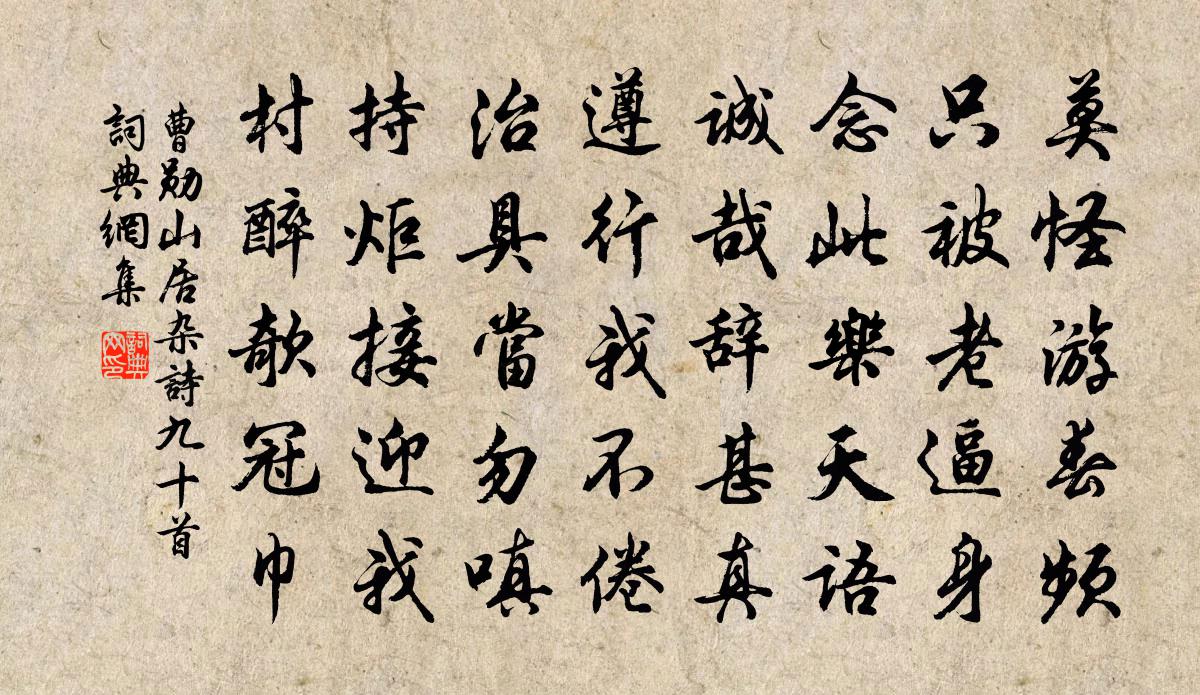 莫怪游春頻
只被老逼身
念此樂天語
誠哉辞甚真
遵行我不倦
治具當勿嗔
持炬接迎我
村醉欹冠巾
曹勛山居杂詩九十首
詞典網集
詞典
网印